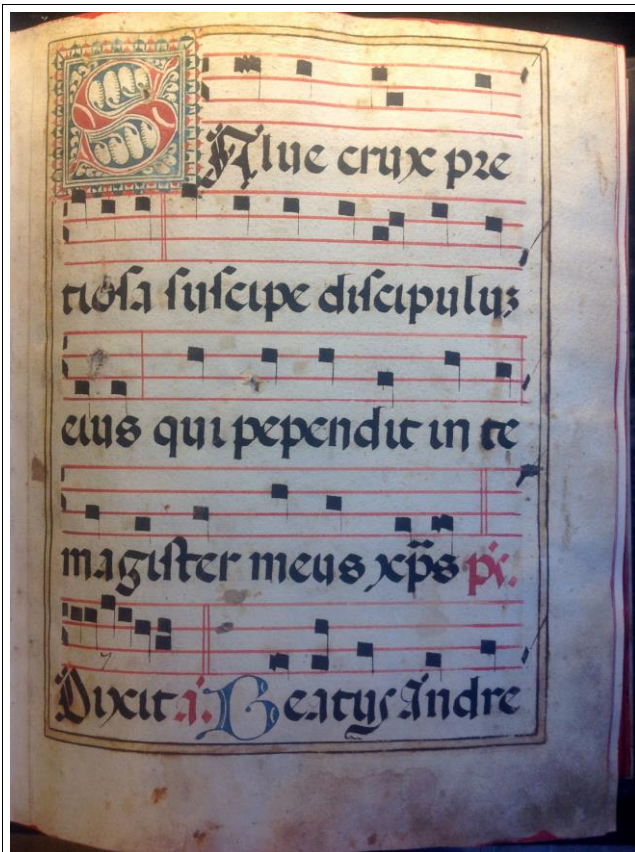 SAlue crux pre
tiosa suscipe discipulus
eius qui pependit in te
magister meus xp̄s ps.
Dixit a. Beatus Andre